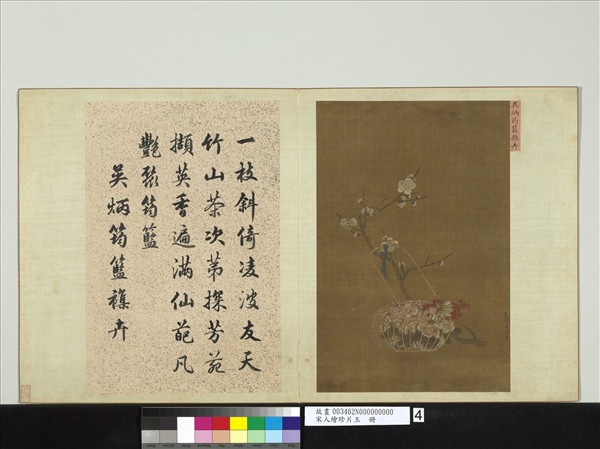 吳炳筠籃襍卉
一枝斜倚凌波友天
竹山茶次苐探芳苑
擷英香遍滿仙葩凡
豔聚筠籃
吳炳筠籃襍卉
故畫 003462N000000000
宋人繪珍片玉 冊
4